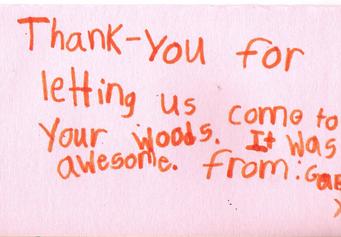 Thank-You for
letting us come to
Your woods. It was
awesome. from: Gab